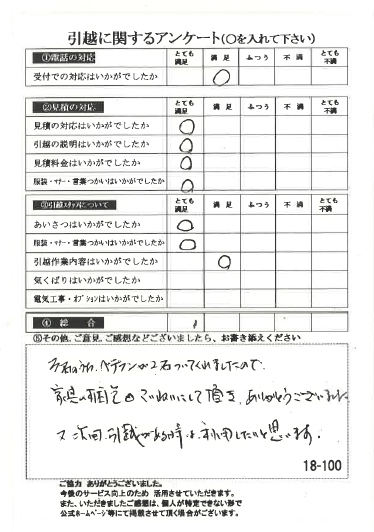 引越に関するアンケート(○を入れて下さい)
①電話の対応 とても満足 満足 ふつう 不満 とても不満
受付での対応はいかがでしたか ○
②見積の対応 とても満足 満足 ふつう 不満 とても不満
見積の対応はいかがでしたか ○
引越の説明はいかがでしたか ○
見積料金はいかがでしたか ○
服装・マナー・言葉つかいはいかがでしたか ○
③引越スタッフについて とても満足 満足 ふつう 不満 とても不満
あいさつはいかがでしたか ○
服装・マナー・言葉つかいはいかがでしたか ○
引越作業内容はいかがでしたか ○
気くばりはいかがでしたか
電気工事・オプションはいかがでしたか
④ 総 合
⑤その他、ご意見、ご感想などございましたら、お書き添えください
3名のうち、ベテランが2名ついてくれましたので、
家具の梱包も ていねいにして頂き、ありがとうございました
又 次回、引越がある時は、利用したいと思います。
18-100
ご協力 ありがとうございました。
今後のサービス向上のため 活用させていただきます。
また、いただきましたご感想は、個人が特定できない形で
公式ホームページ等にて掲載させて頂く場合がございます。